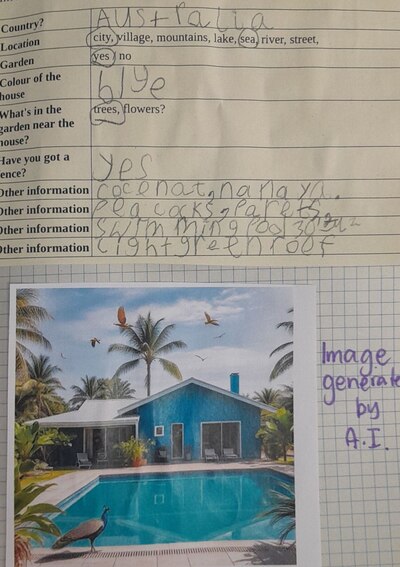 Country? Australia
Location city, village, mountains, lake, sea, river, street,
Garden yes / no
Colour of the
house blye
What's in the trees, flowers?
garden near the
house?
Have you got a yes
ence?
Other information cocenat, nanaya.
Other information peacocks, parets,
Other information swimming pool 30
Other information lightgreen roof
Image
generate
by
A.I.